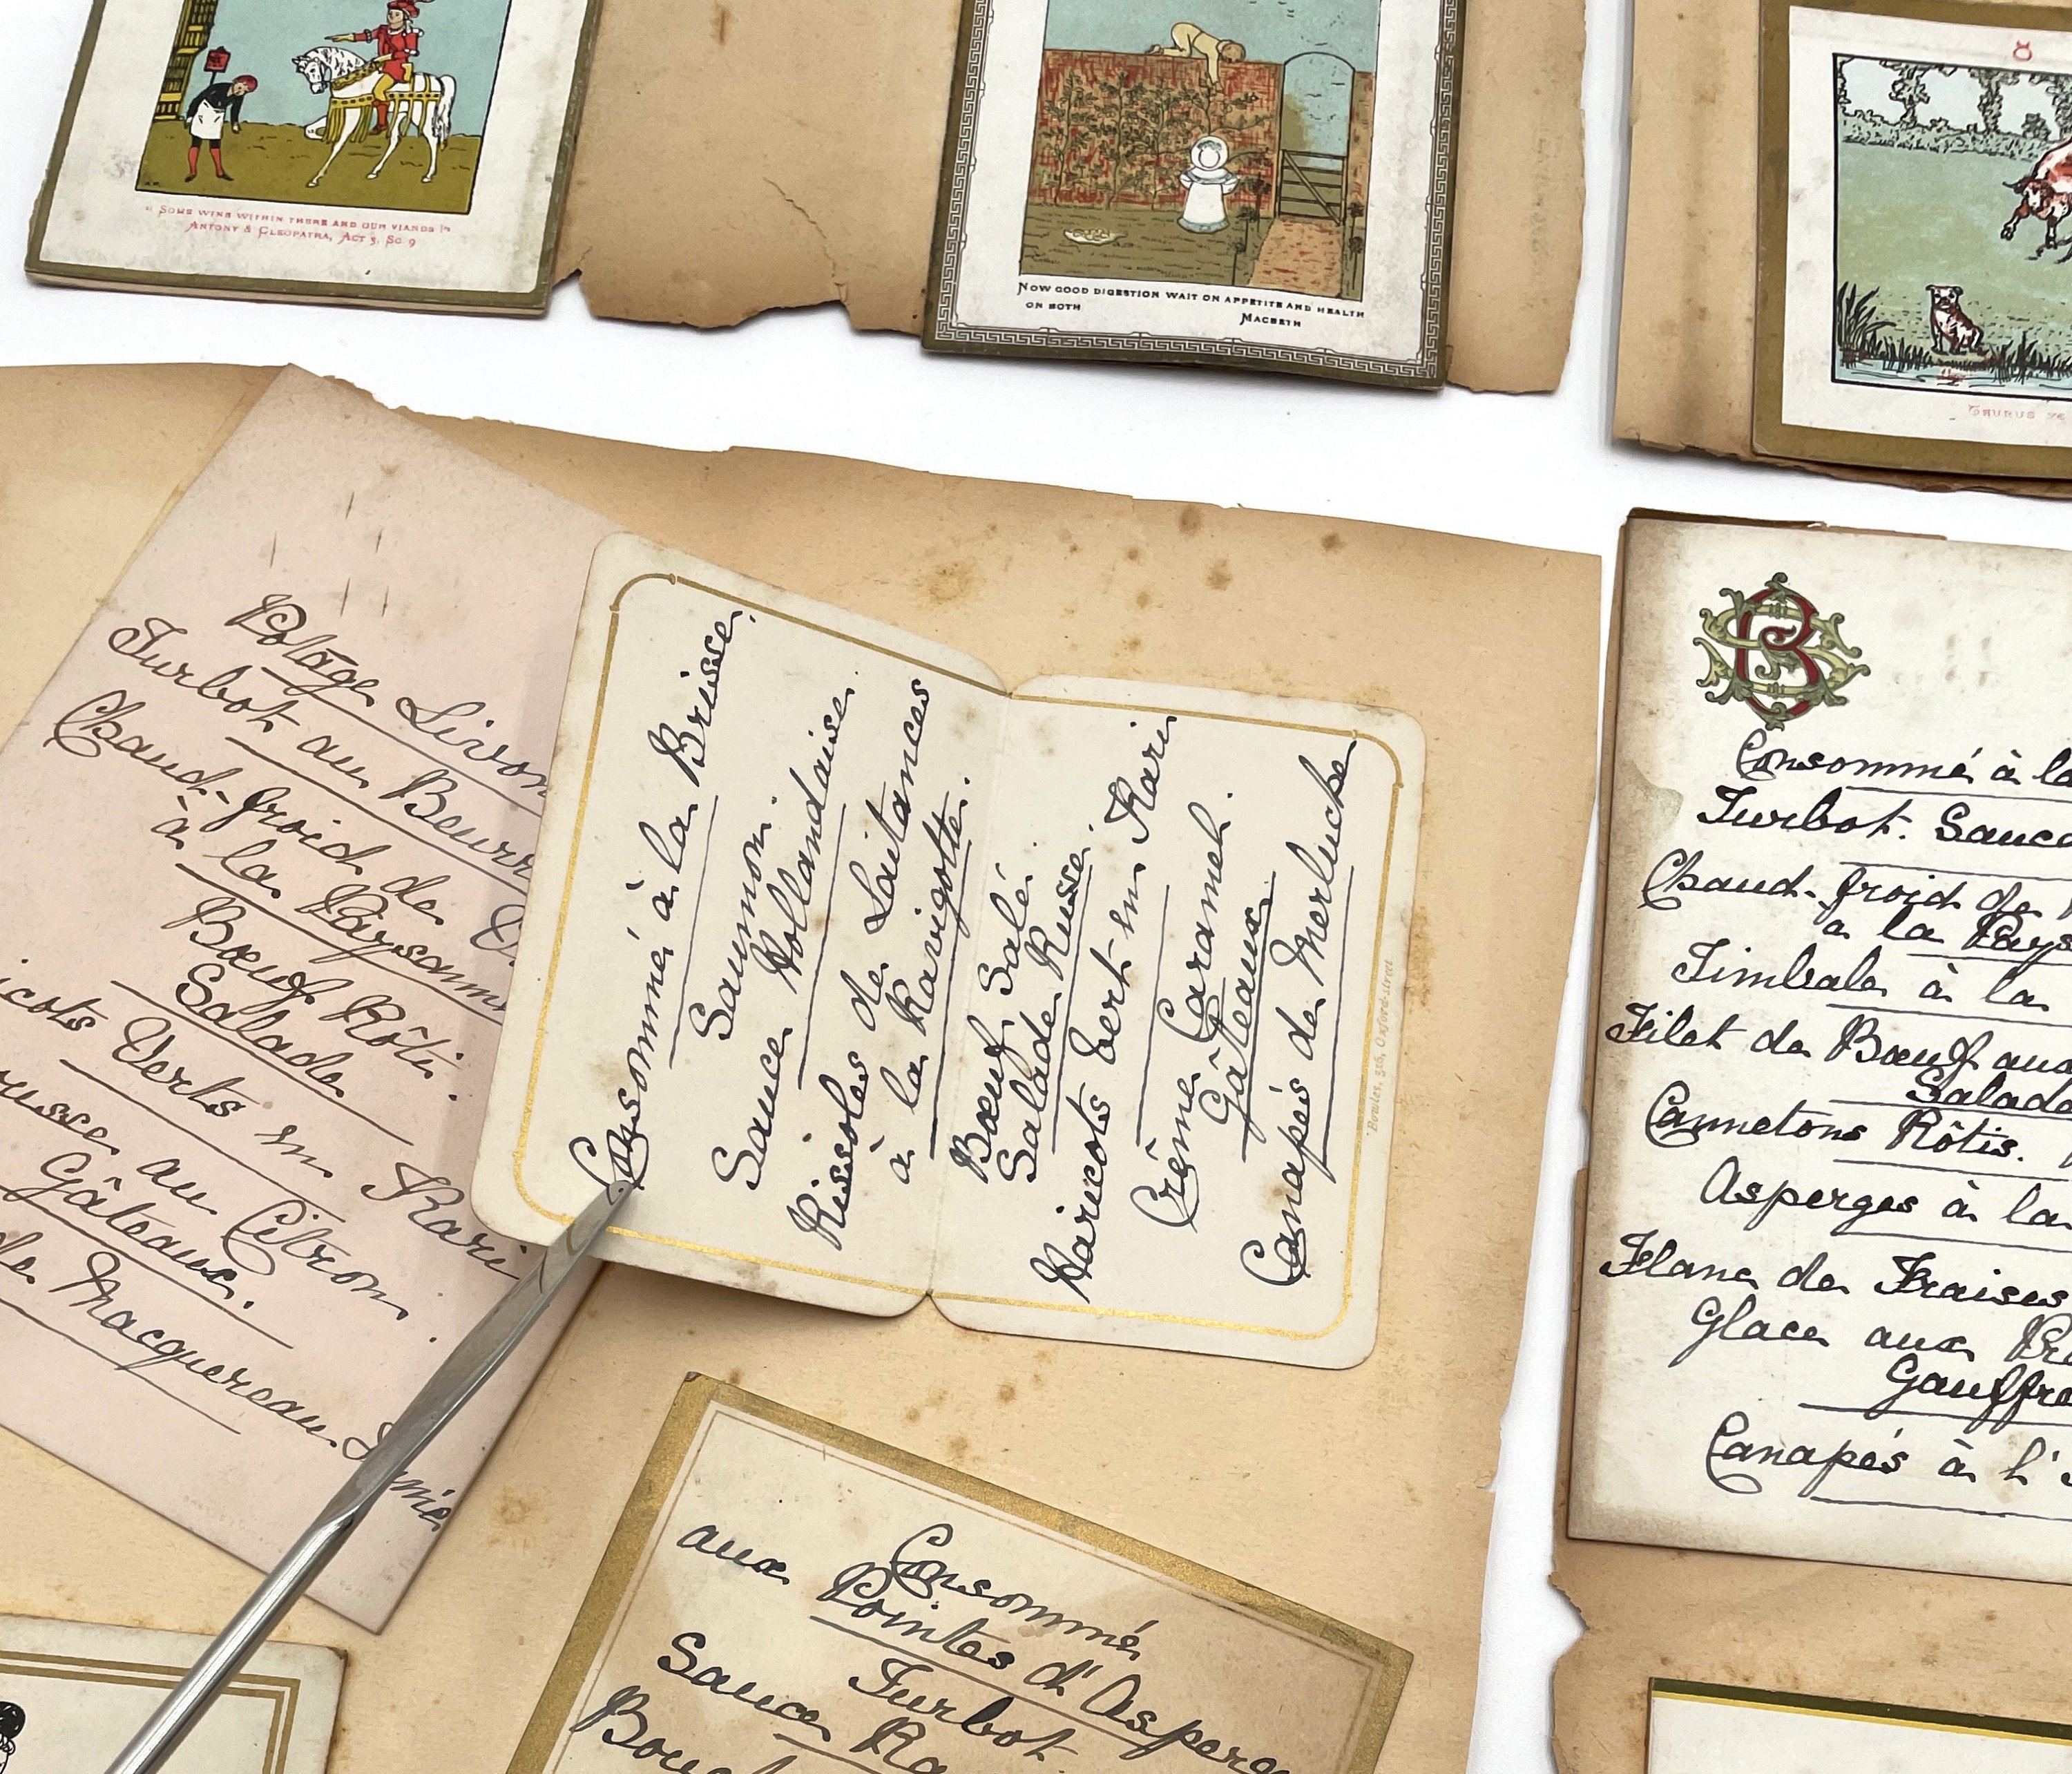 "SOME WINE WITHIN THERE AND OUR VIANDS!"
ANTONY & CLEOPATRA, ACT 3, SC. 9
NOW GOOD DIGESTION WAIT ON APPETITE AND HEALTH
ON BOTH
MACBETH
TAURUS YE
Potage Livon
Turbot au Beurr
Chaud-froid de
à la Paysanne
Bœuf Rôti.
Salade
icots Verts en Kari
au Citron.
Gâteaux.
de Macquereau Fumé
Consommé à la Brisse.
Saumon.
Sauce Hollandaise.
Rissoles de Laitances
à la Ravigotte.
Bœuf Salé.
Salade Russe.
Haricots Vert en Kari
Crême Caramel.
Gâteaux.
Canapés de Merluche
Bowles, 316, Oxford-street
Consommé à la
Turbot. Sauce
Chaud-froid de
à la Pays
Timbale à la
Filet de Bœuf aux
Salade
Cannetons Rôtis.
Asperges à la
Flane de Fraises
Glace aux
Gauffre
Canapés à l'
Consommé
aux Pointes d'Asperge
Turbot.
Sauce